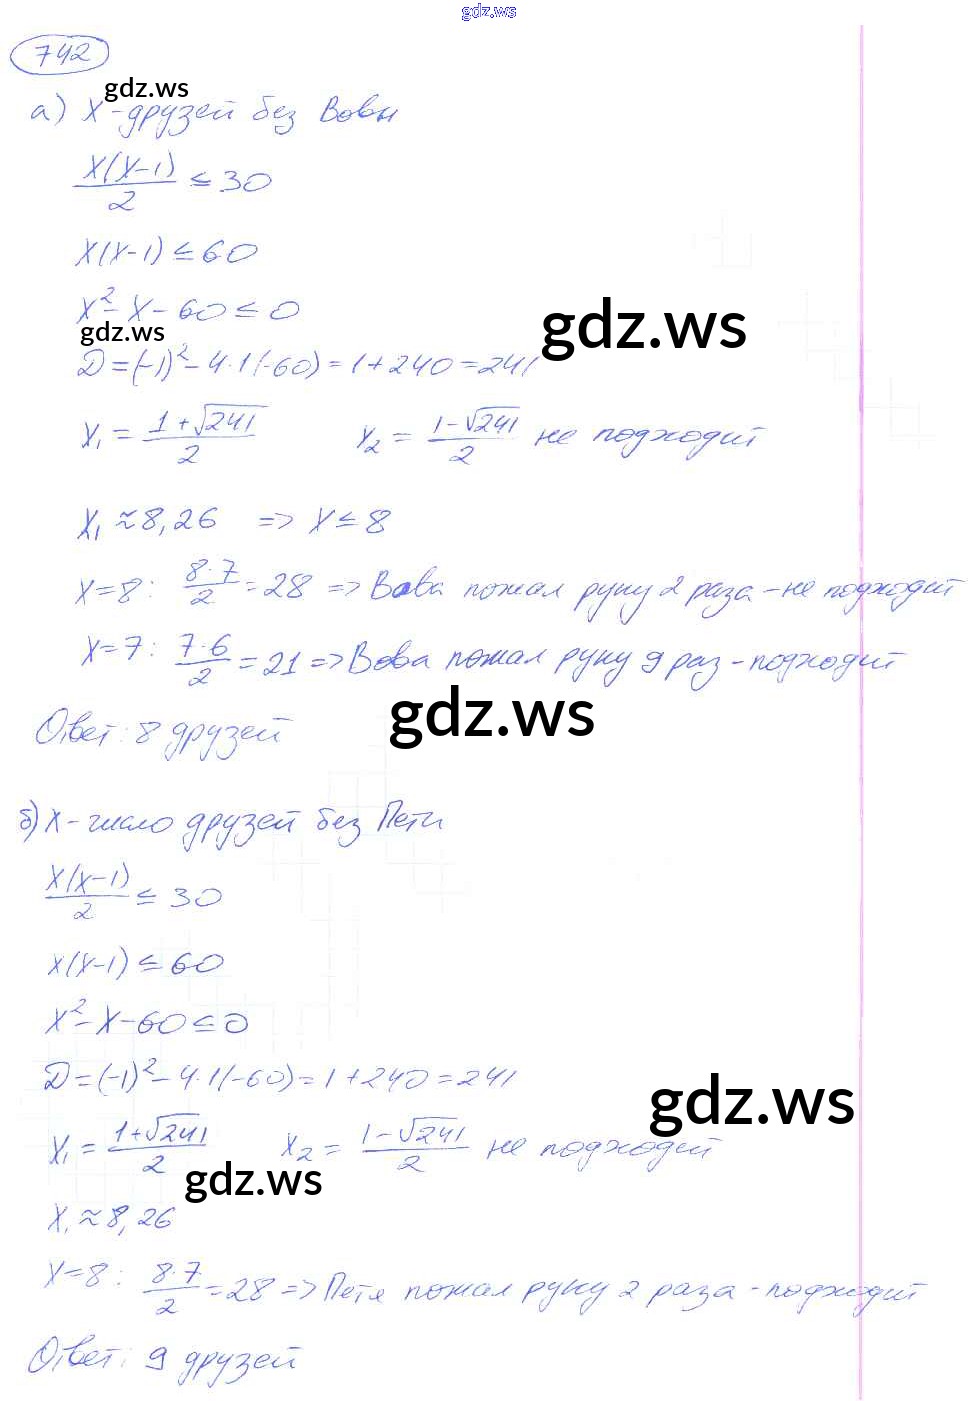 gdz.ws
742
gdz.ws
а) x - друзей без Вовы
x(x-1)/2 ≤ 30
x(x-1) ≤ 60
x² - x - 60 ≤ 0
gdz.ws
gdz.ws
D = (-1)² - 4·1(-60) = 1 + 240 = 241
x₁ = (1+√241)/2 x₂ = (1-√241)/2 не подходит
x₁ ≈ 8,26 => x ≤ 8
x = 8: 8·7/2 = 28 => Вова пожал руку 2 раза - не подходит
x = 7: 7·6/2 = 21 => Вова пожал руку 9 раз - подходит
gdz.ws
Ответ: 8 друзей
б) x - число друзей без Пети
x(x-1)/2 ≤ 30
x(x-1) ≤ 60
x² - x - 60 ≤ 0
D = (-1)² - 4·1(-60) = 1 + 240 = 241
gdz.ws
x₁ = (1+√241)/2 x₂ = (1-√241)/2 не подходит
gdz.ws
x₁ ≈ 8,26
x = 8: 8·7/2 = 28 => Петя пожал руку 2 раза - подходит
Ответ: 9 друзей